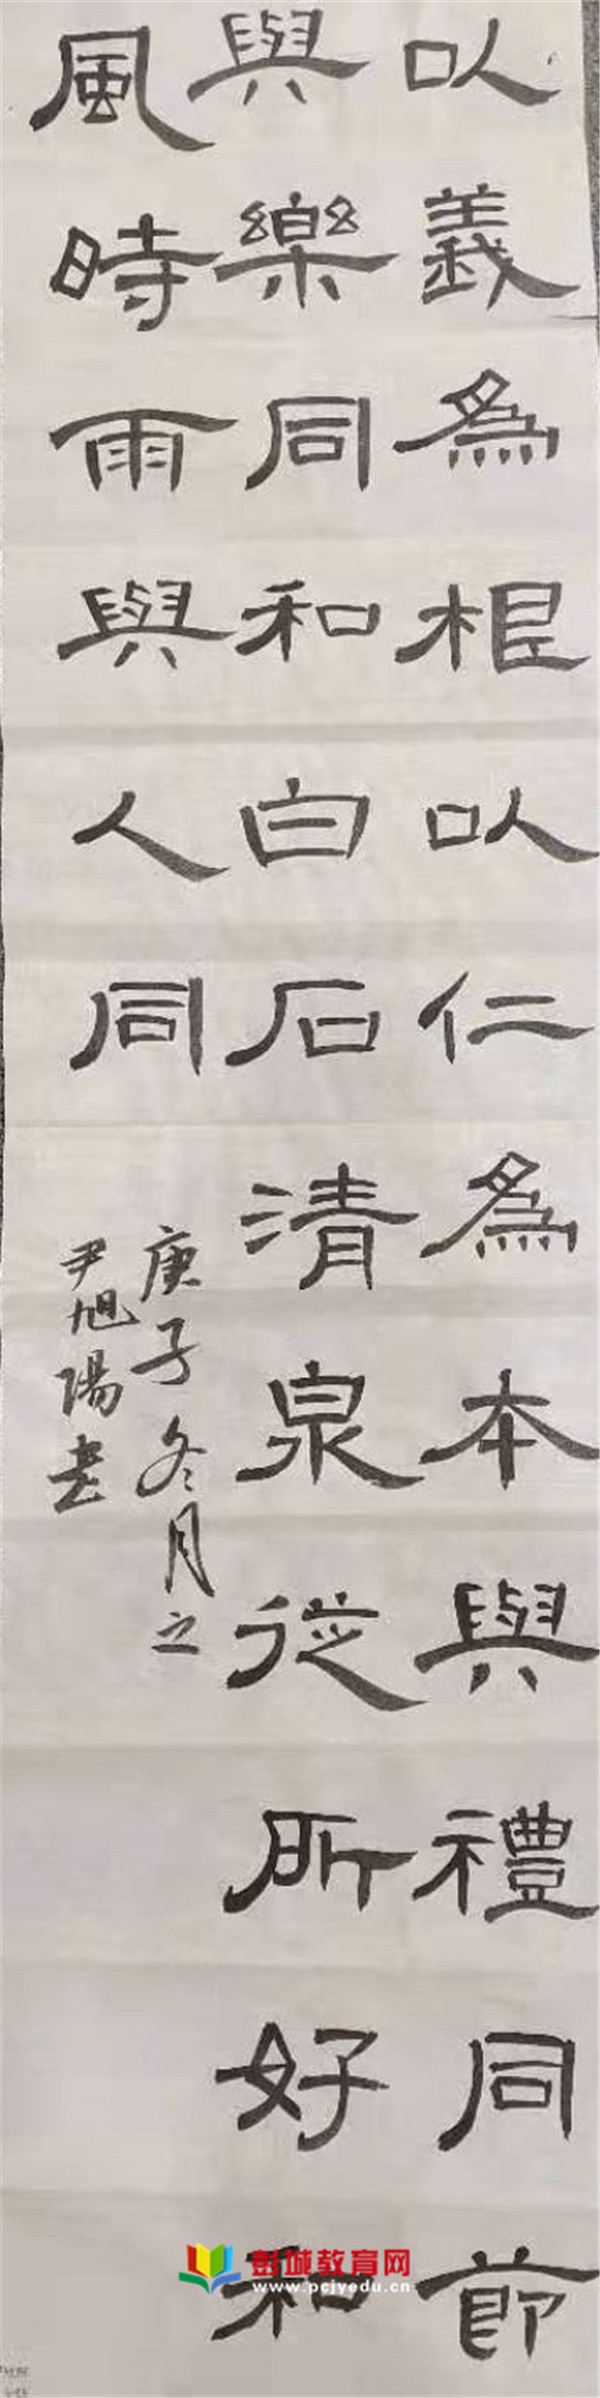 以義為根以仁為本與禮同節
與樂同和白石清泉從所好和
風時雨與人同
庚子冬月之
尹旭陽书
彭城教育网
www.pcjyedu.cn